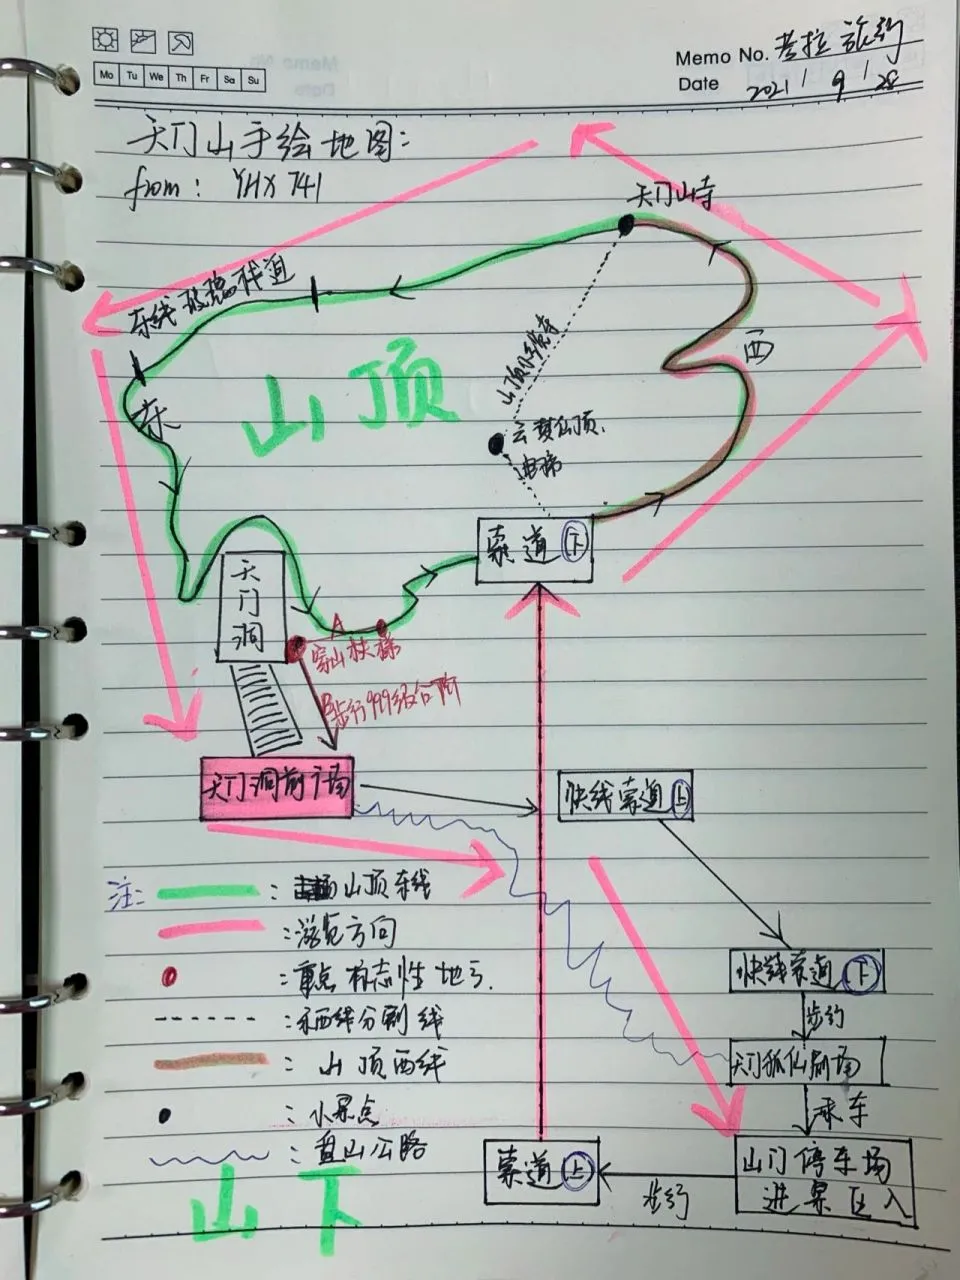 Memo No. 考拉旅行
Mo Tu We Th Fr Sa Su
Date 2021/9/28
天门山手绘地图:
from: YHX 741
天门山寺
东线玻璃栈道
西
山顶
东
云梦仙顶.
索道下
天门洞
穿山扶梯
步行999级台阶
天门洞前广场
快线索道上
注:
:山顶东线
:游览方向
快线索道下
:重点标志性地
步行
:东西线分割线
天门狐仙剧场
:山顶西线
乘车
:小景点
:盘山公路
索道上
步行
山门停车场
进景区入
山下